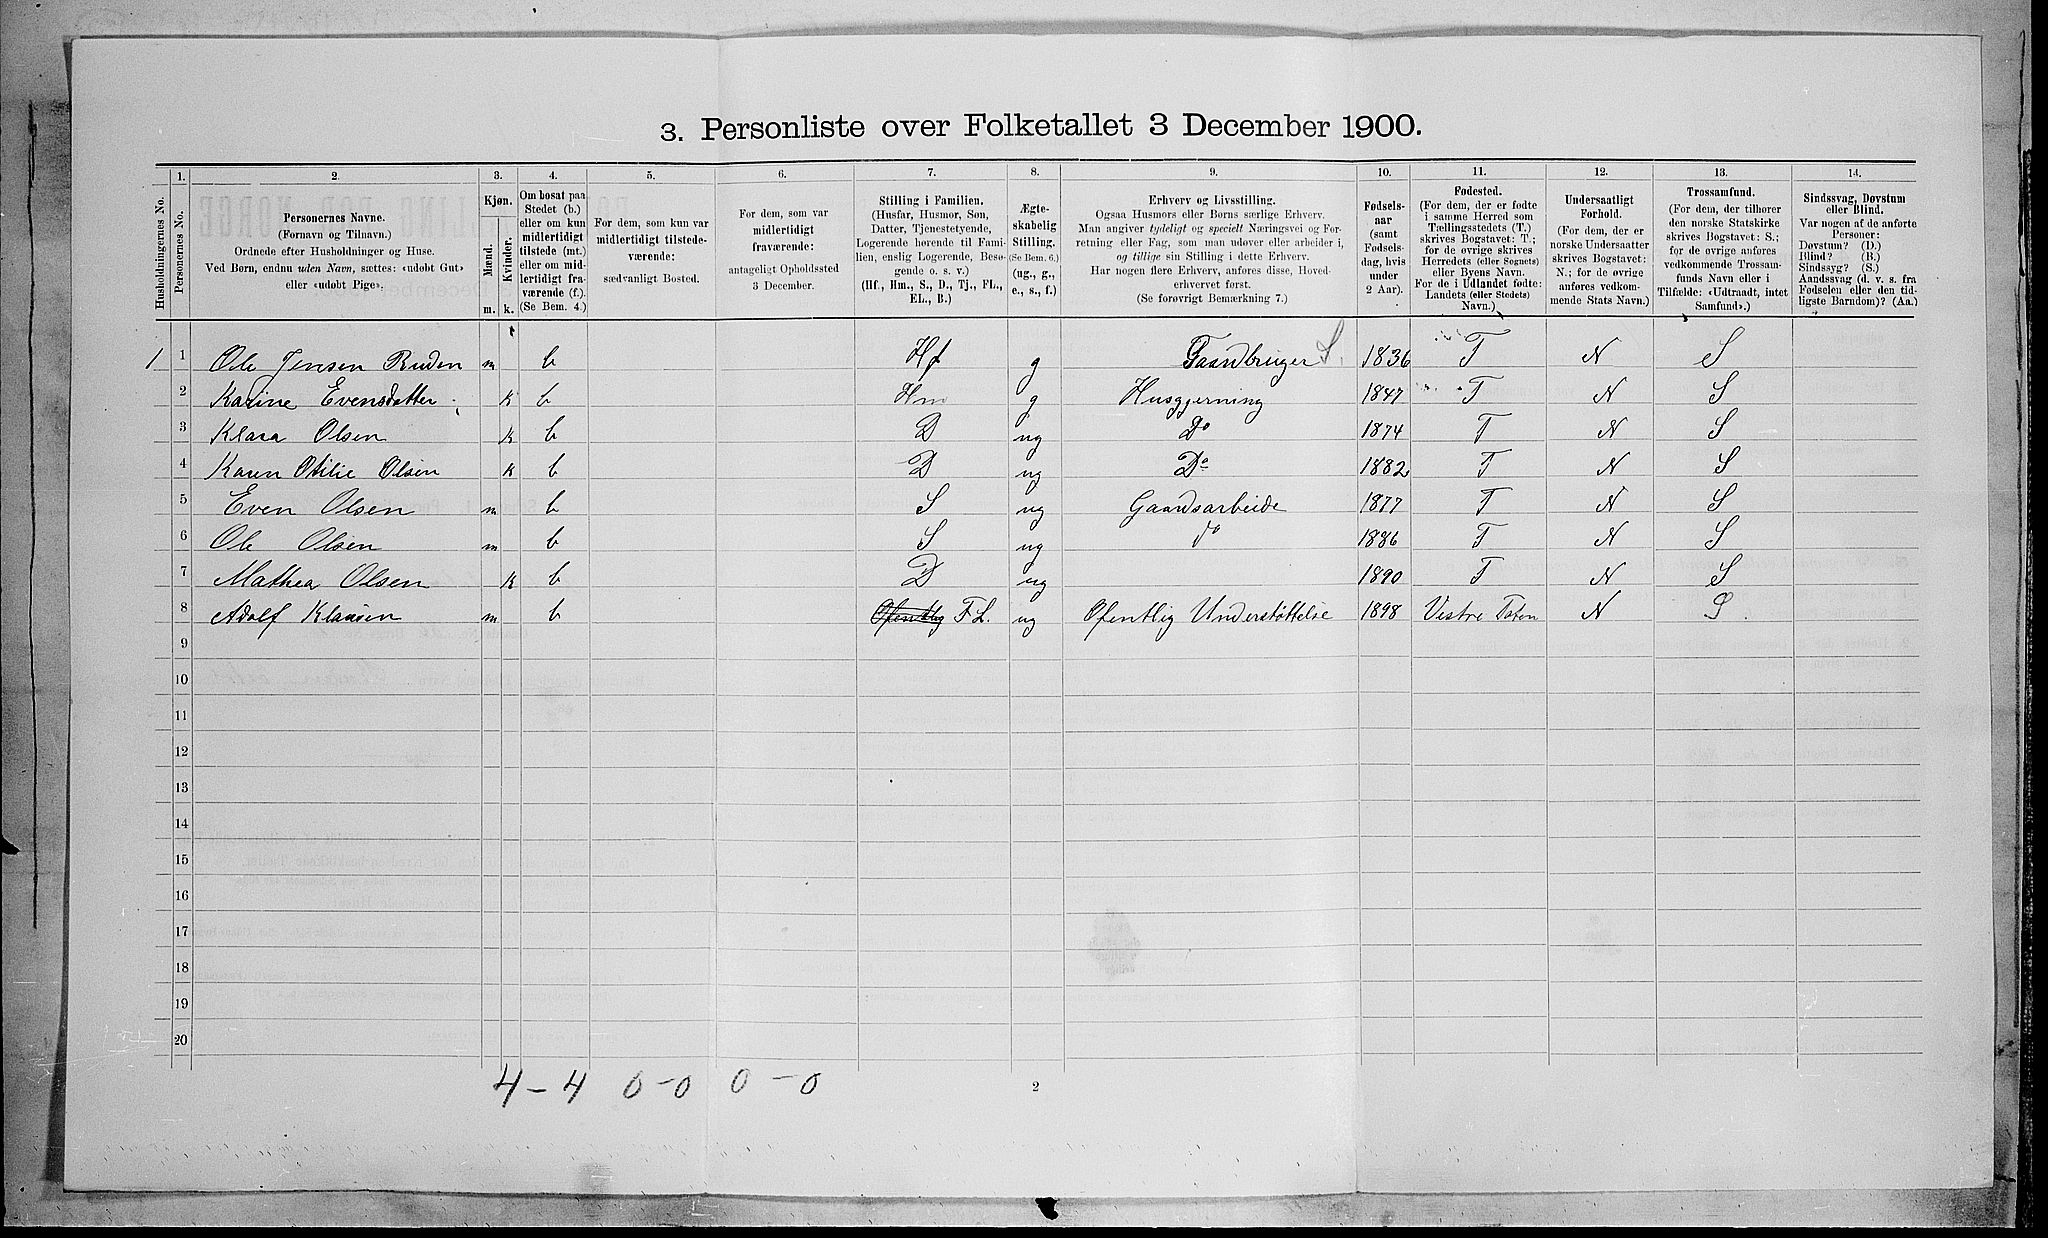 3. Personliste over Folketallet 3 December 1900.
1. 2. 3. 4. 5. 6. 7. 8. 9. 10. 11. 12. 13. 14.
Husholdningernes No.
Personernes No.
Personernes Navne.
(Fornavn og Tilnavn.)
Ordnede efter Husholdninger og Huse.
Ved Børn, endnu uden Navn, sættes: «udøbt Gut»
eller «udøbt Pige».
Kjøn.
Mænd.
Kvinder.
m. k.
Om bosat paa
Stedet (b.)
eller om kun
midlertidigt
tilstede (mt.)
eller om mid-
lertidigt fra-
værende (f.).
(Se Bem. 4.)
For dem, som kun var
midlertidigt tilstede-
værende:
sædvanligt Bosted.
For dem, som var
midlertidigt
fraværende:
antageligt Opholdssted
3 December.
Stilling i Familien.
(Husfar, Husmor, Søn,
Datter, Tjenestetyende,
Logerende hørende til Fami-
lien, enslig Logerende, Besø-
gende o. s. v.)
(Hf., Hm., S., D., Tj., FL.,
EL., B.)
Ægte-
skabelig
Stilling.
(Se Bem. 6.)
(ug., g.,
e., s., f.)
Erhverv og Livsstilling.
Ogsaa Husmors eller Børns særlige Erhverv.
Man angiver tydeligt og specielt Næringsvei og For-
retning eller Fag, som man udøver eller arbeider i,
og tillige sin Stilling i dette Erhverv.
Har nogen flere Erhverv, anføres disse, Hoved-
erhvervet først.
(Se forøvrigt Bemærkning 7.)
Fødsels-
aar
(samt
Fødsels-
dag, hvis
under
2 Aar).
Fødested.
(For dem, der er fødte
i samme Herred som
Tællingsstedets (T.)
skrives Bogstavet: T.;
for de øvrige skrives
Herredets (eller Sognets)
eller Byens Navn.
For de i Udlandet fødte:
Landets (eller Stedets)
Navn.)
Undersaatligt
Forhold.
(For dem, der er
norske Undersaatter
skrives Bogstavet:
N.; for de øvrige
anføres vedkom-
mende Stats Navn.)
Trossamfund.
(For dem, der tilhører
den norske Statskirke
skrives Bogstavet: S.;
for de øvrige anføres
vedkommende Trossam-
funds Navn eller i
Tilfælde: «Udtraadt, intet
Samfund».)
Sindssvag, Døvstum
eller Blind.
Var nogen af de anførte
Personer:
Døvstum? (D.)
Blind? (B.)
Sindssyg? (S.)
Aandssvag (d. v. s. fra
Fødselen eller den tid-
ligste Barndom)? (Aa.)
1 1 Ole Jensen Ruden m b Hf g Gaardbruger S. 1836 T N S
2 Karine Evensdatter k b Hm g Husgjerning 1847 T N S
3 Klara Olsen k b D ug Do 1874 T N S
4 Karen Otilie Olsen k b D ug Do 1882 T N S
5 Even Olsen m b S ug Gaardsarbeide 1877 T N S
6 Ole Olsen m b S ug do 1886 T N S
7 Mathea Olsen k b D ug 1890 T N S
8 Adolf Klausen m b Ofentlig FL. ug Ofentlig Understøttelse 1898 Vestre Toten N S.
9
10
11
12
13
14
15
16
17
18
19
20
4 - 4 0 - 0 0 - 0
2